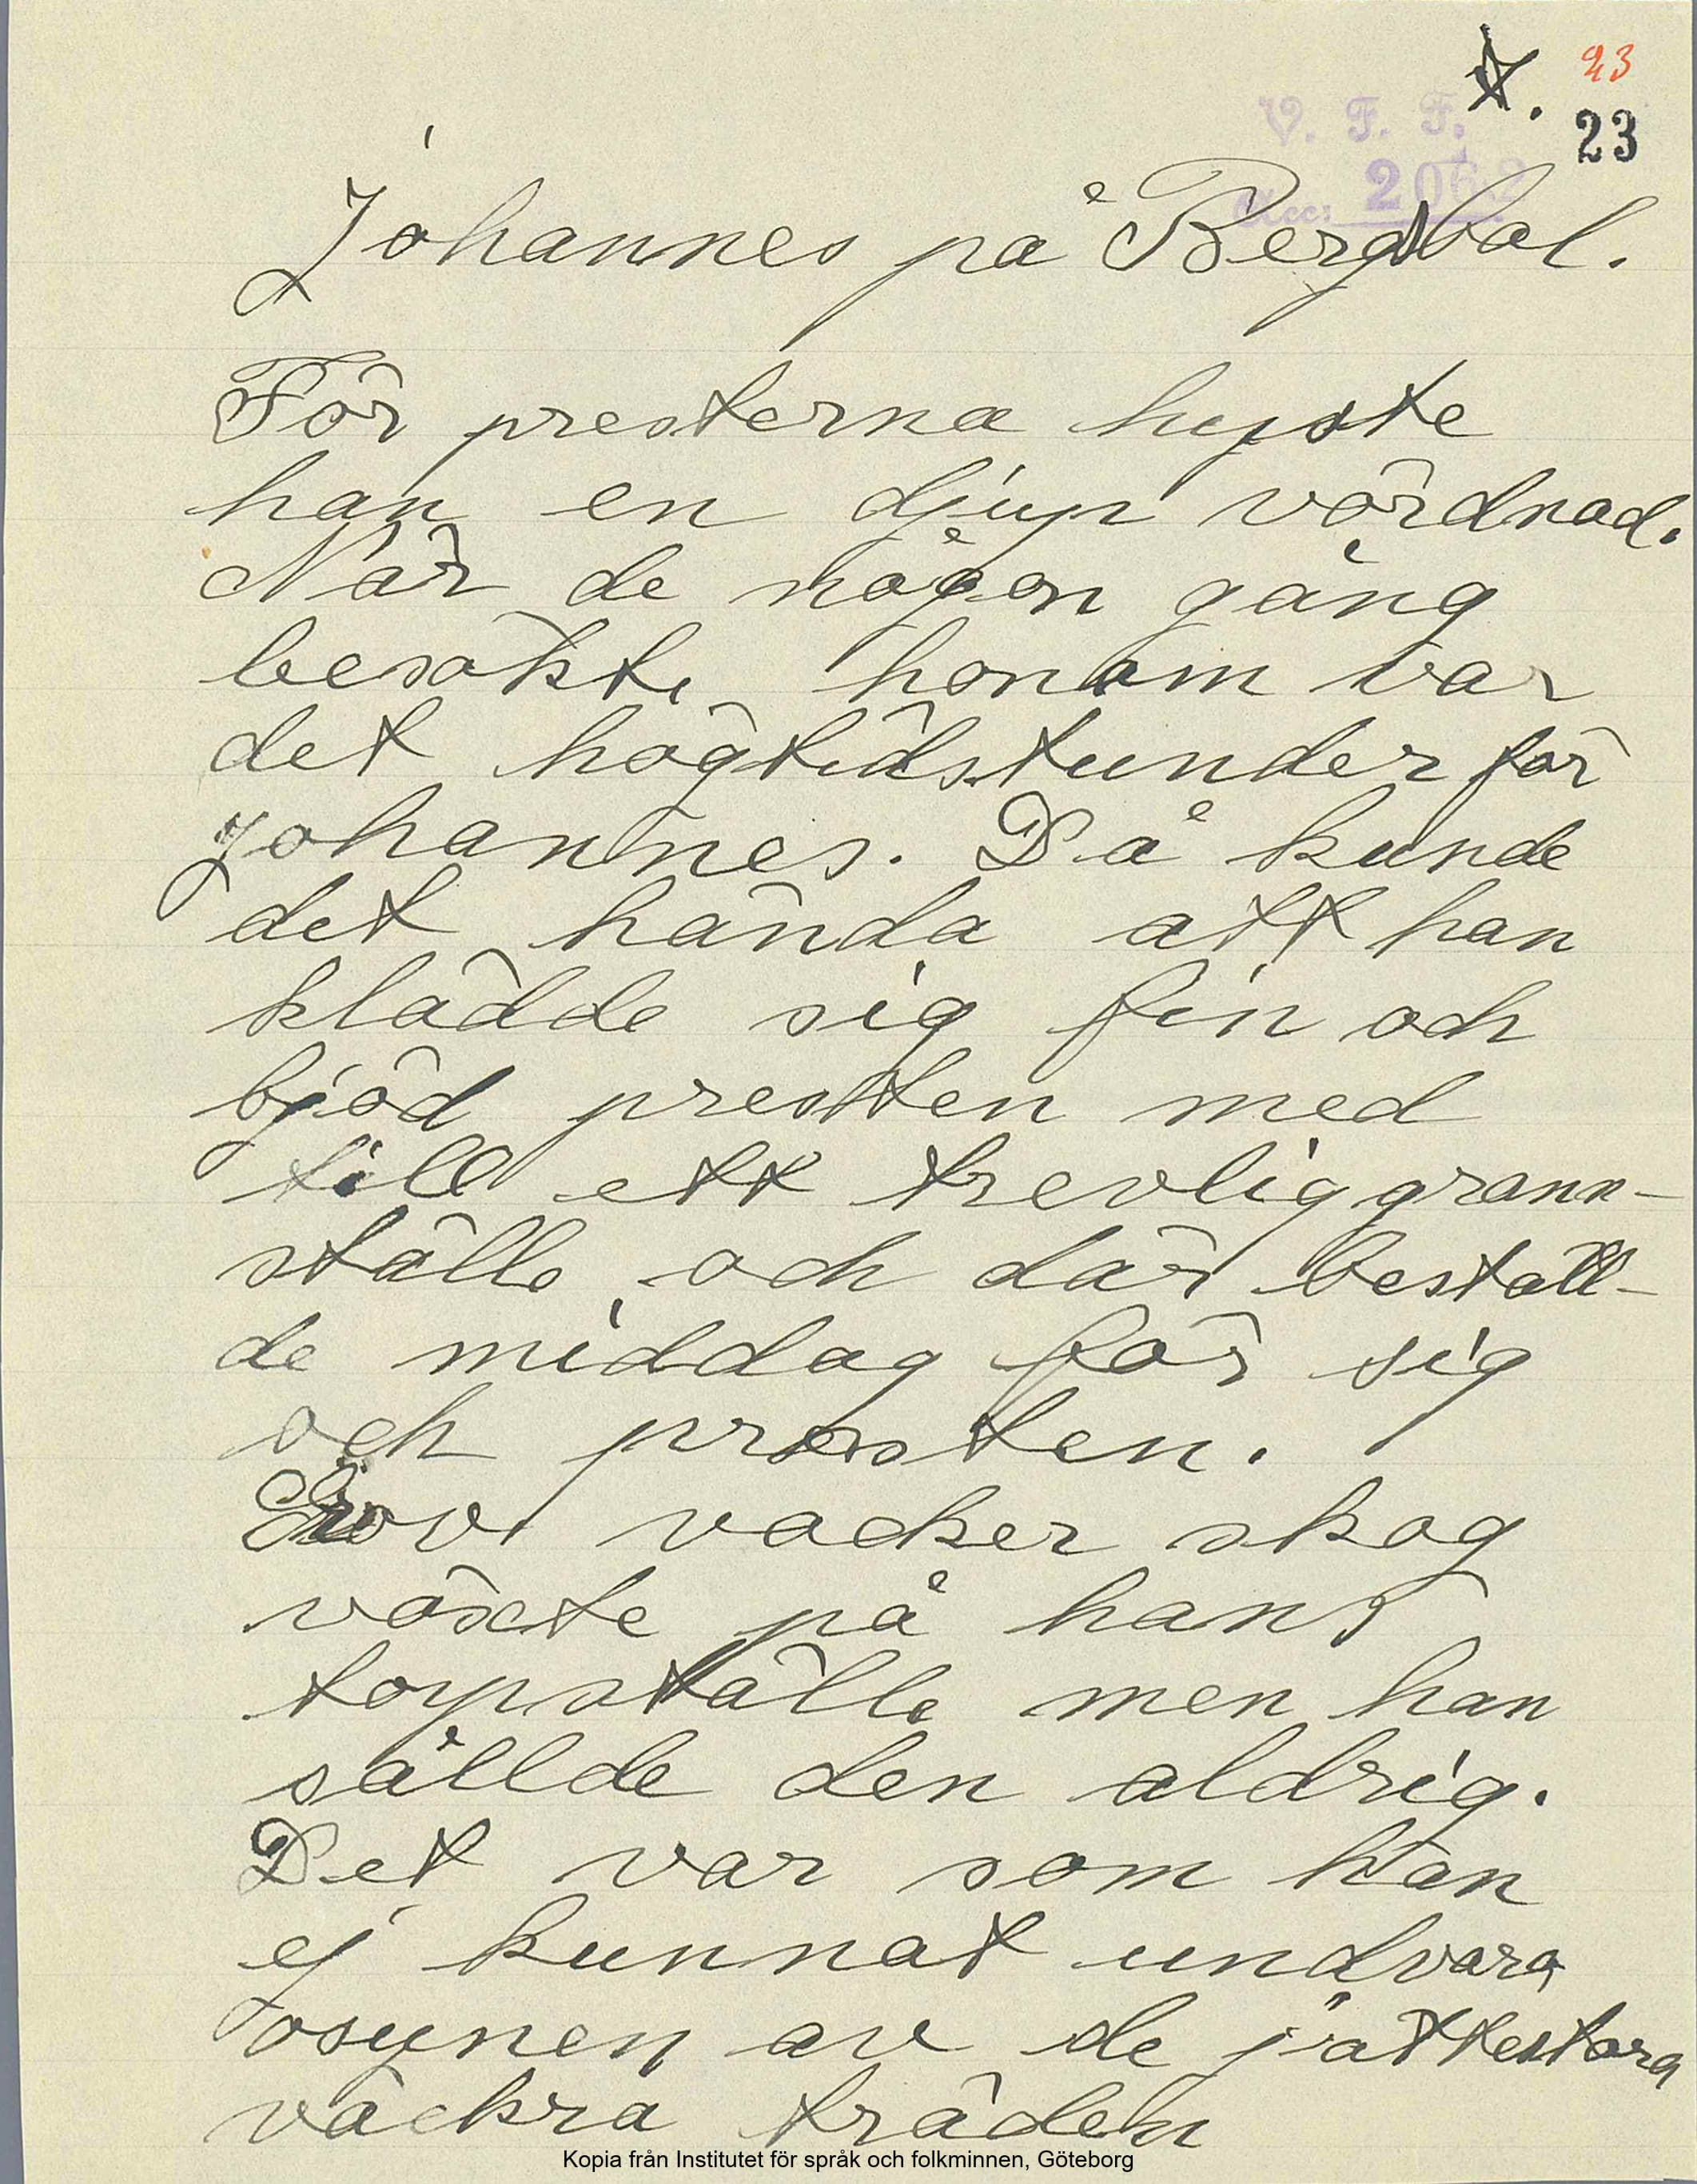 23
V. F. F. 23
Acc: 2062
Johannes på Bergdal.
För presterna hyste
han en djup vördnad.
När de någon gång
besökte honom var
det högtidstunder för
Johannes. Då kunde
det hända att han
klädde sig fin och
bjöd presten med
till ett trevlig grann-
ställe, och där beställ-
de middag för sig
och prosten.
Grov vacker skog
växte på hans
torpställe men han
sållde den aldrig.
Det var som han
ej kunnat undvara
åsynen av de jättestora
vackra träden
Kopia från Institutet för språk och folkminnen, Göteborg